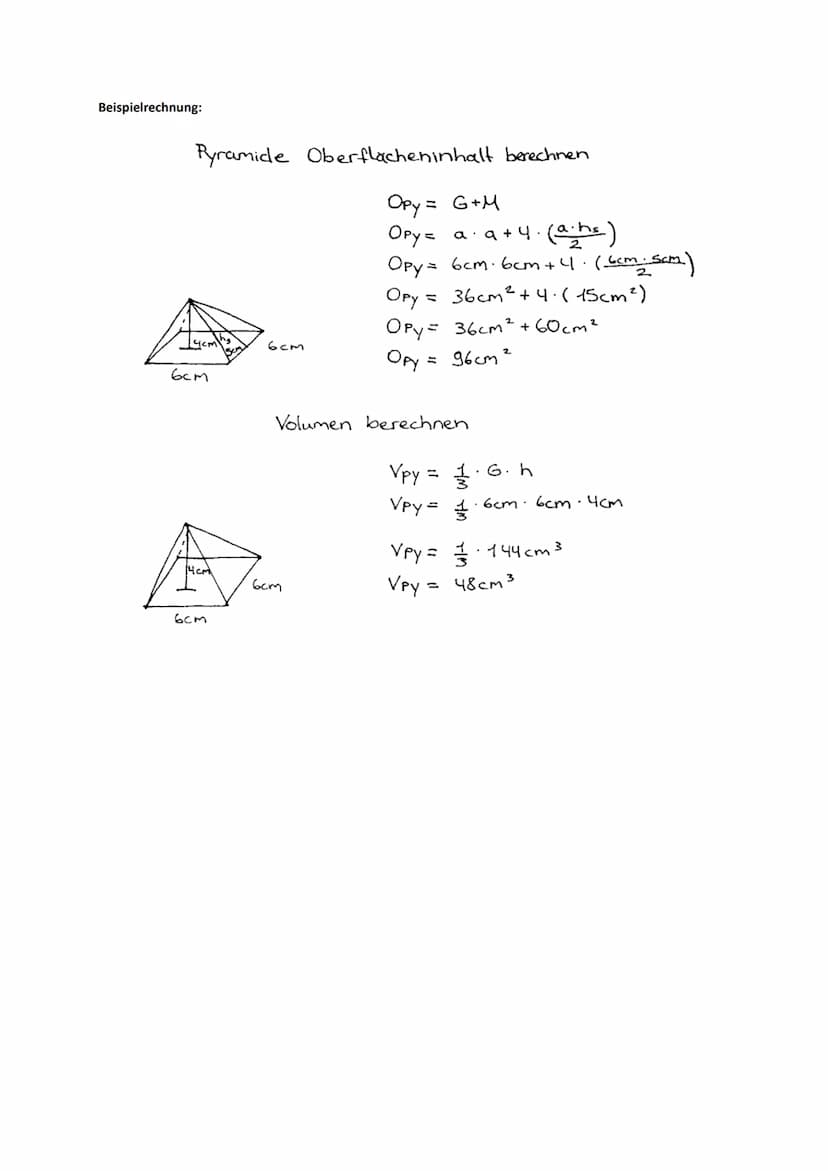 Beispielrechnung:
Pyramide Oberflächeninhalt berechnen
Opy = G+M
Opy = a · a + 4 · (a·hs/2)
Opy = 6cm · 6cm + 4 · (6cm · 5cm/2)
Opy = 36cm² + 4 · (15cm²)
Opy = 36cm² + 60cm²
Opy = 96cm²
4cm hs 5cm 6cm
6cm
Volumen berechnen
Vpy = 1/3 · G · h
Vpy = 1/3 · 6cm · 6cm · 4cm
Vpy = 1/3 · 144cm³
Vpy = 48cm³
4cm
6cm
6cm